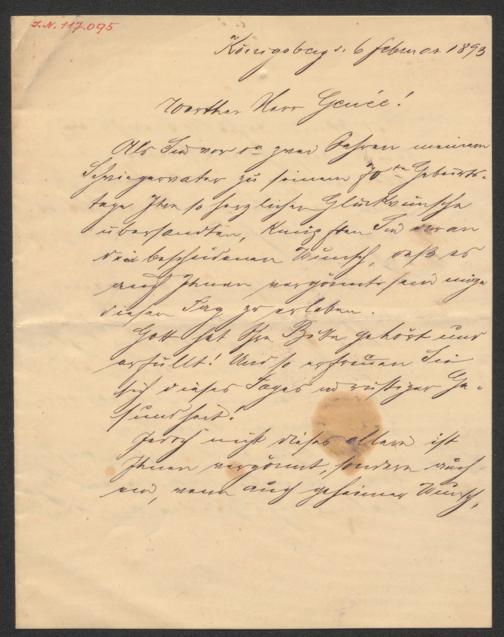 I.N. 117.095
Königsberg d. 6 Februar 1893
Werther Herr Genée!
Als Sie vor ca zwei Jahren meinem
Schwiegervater zu seinem 70ten Geburts-
tage Ihre so herzlichen Glückwünsche
übersandten, knüpften Sie daran
den bescheidenen Wunsch, daß es
auch Ihnen vergönnt sein möge
diesen Tag zu erleben.
Gott hat Ihre Bitte gehört und
erfüllt! Und so erfreuen Sie
sich dieses Tages in rüstiger Ge-
sundheit.
Jedoch nicht dieses allein ist
Ihnen vergönnt, sondern auch
ein, wenn auch geheimer Wunsch,